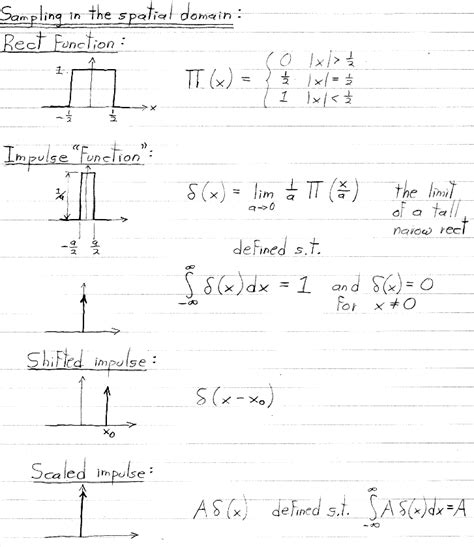 Sampling in the spatial domain:
Rect Function:
1
-1/2 1/2 x
Π(x) = { 0 |x| > 1/2
1/2 |x| = 1/2
1 |x| < 1/2
Impulse "Function":
1/a
-a/2 a/2
δ(x) = lim a→0 1/a Π(x/a) the limit
of a tall
narow rect
defined s.t.
∫_{-∞}^{∞} δ(x)dx = 1 and δ(x) = 0
for x ≠ 0
Shifted impulse:
x₀
δ(x-x₀)
Scaled impulse:
Aδ(x) defined s.t. ∫_{-∞}^{∞} Aδ(x)dx = A